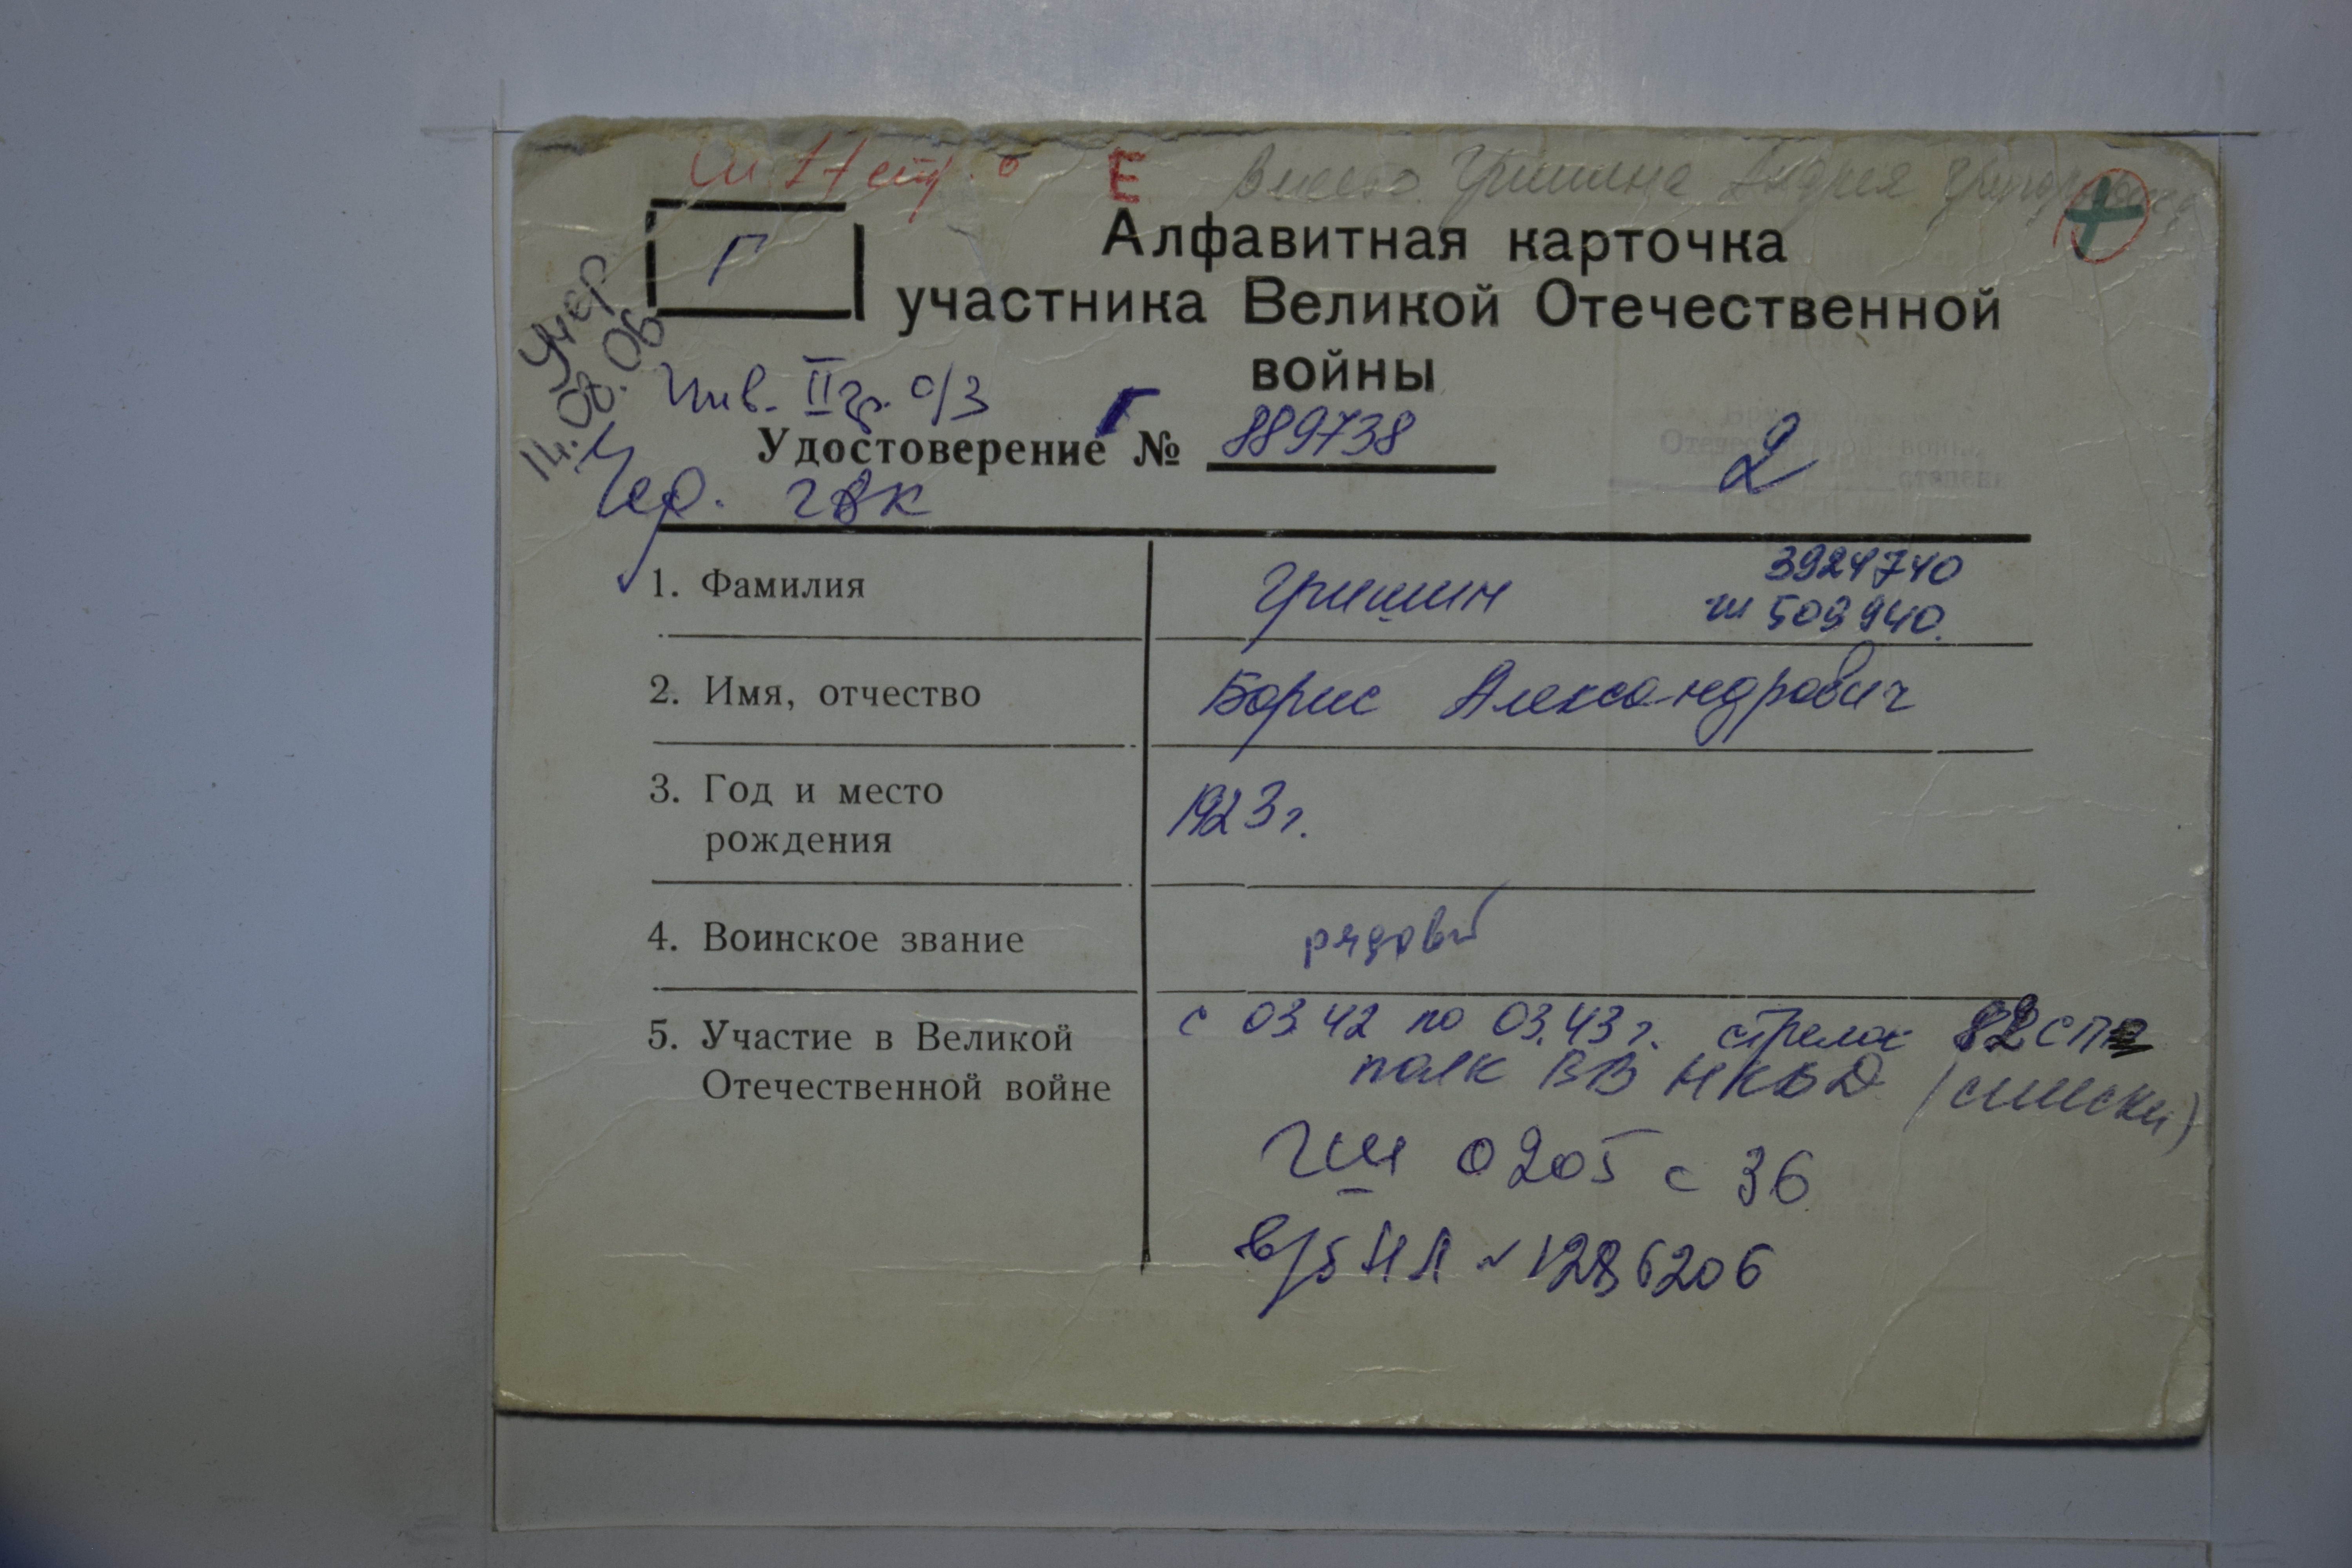 Е вместо Гришина Андрея
Г
Алфавитная карточка
участника Великой Отечественной
войны
умер
14.08.06
Инв. II гр. о/з
Удостоверение Г № 889738
2
Чер. ГВК
1. Фамилия Гришин 3924740
509940.
2. Имя, отчество Борис Александрович
3. Год и место
рождения 1923 г.
4. Воинское звание рядовой
5. Участие в Великой
Отечественной войне
с 03.42 по 03.43 г. стрелок 82 сп
полк ВВ НКВД (списки)
ГШ 0205 с 36
в/б НЛ № 1286206